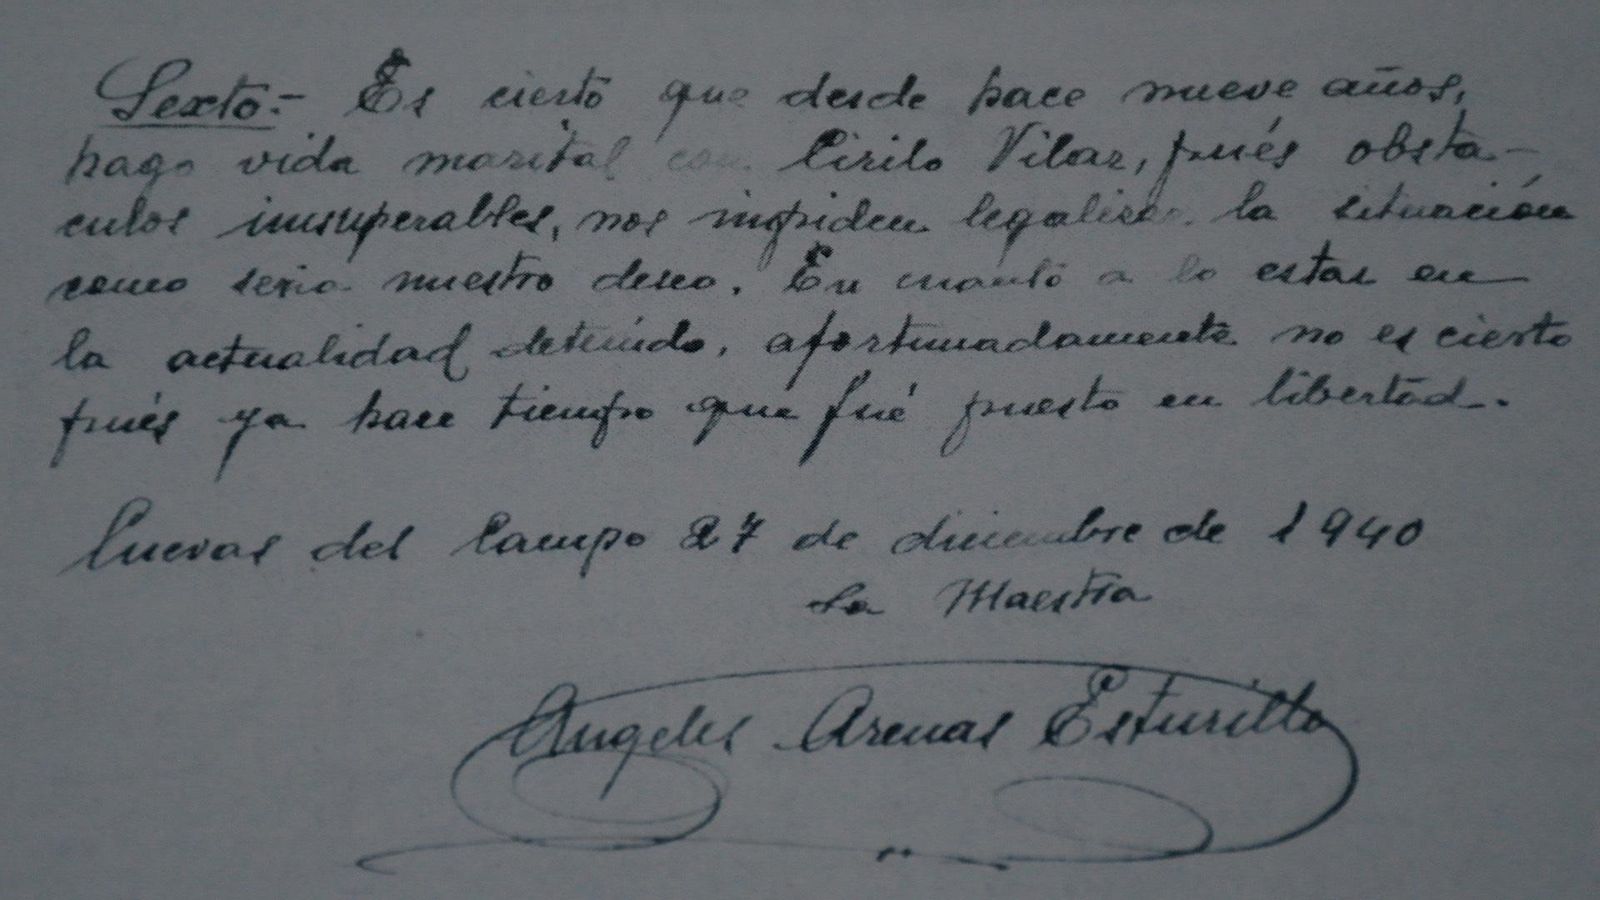 Sexto:- Es cierto que desde hace nueve años,
hago vida marital con Cirilo Vilar, pués obstá-
culos insuperables, nos impiden legalizar la situación
como seria nuestro deseo. En cuanto a lo estar en
la actualidad detenido, afortunadamente no es cierto
pués ya hace tiempo que fué puesto en libertad.
Cuevas del Campo 27 de diciembre de 1940
La Maestra
Angeles Arenas Esturillo